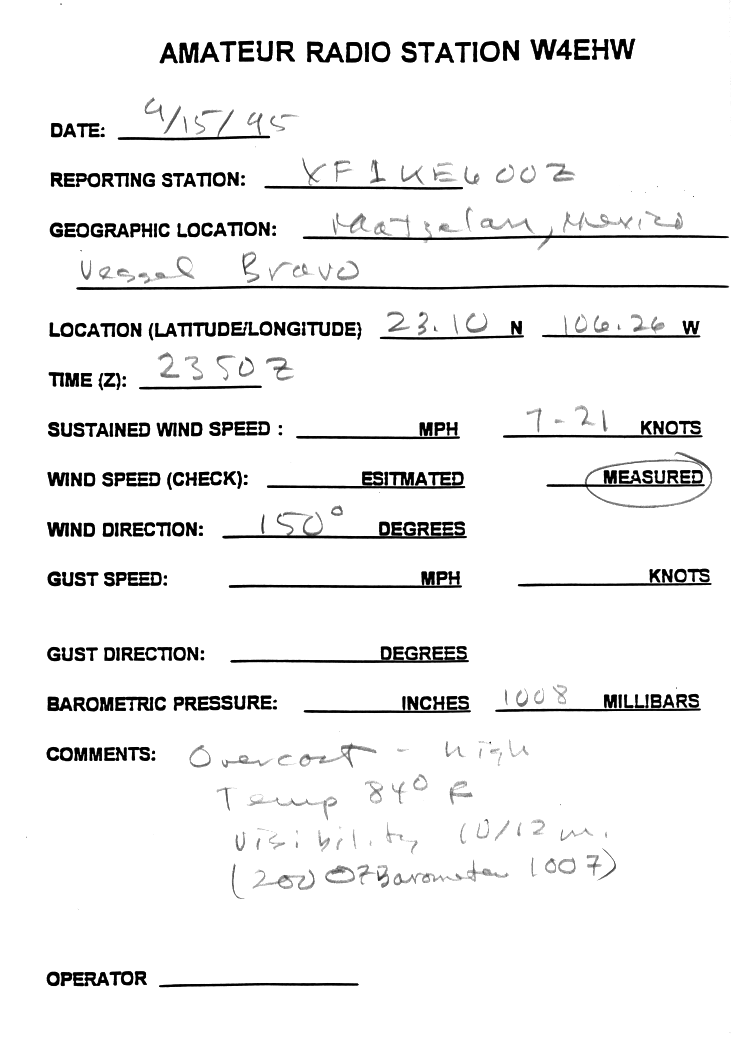 AMATEUR RADIO STATION W4EHW
DATE: 9/15/95
REPORTING STATION: XF1KE6OOZ
GEOGRAPHIC LOCATION: Matzelan, Mexico
Vessel Bravo
LOCATION (LATITUDE/LONGITUDE) 23.10 N 106.26 W
TIME (Z): 2350Z
SUSTAINED WIND SPEED : MPH 7-21 KNOTS
WIND SPEED (CHECK): ESITMATED MEASURED
WIND DIRECTION: 150° DEGREES
GUST SPEED: MPH KNOTS
GUST DIRECTION: DEGREES
BAROMETRIC PRESSURE: INCHES 1008 MILLIBARS
COMMENTS: Overcast - high
Temp 84° F
Visibility 10/12 m.
(2000Z Barometer 1007)
OPERATOR